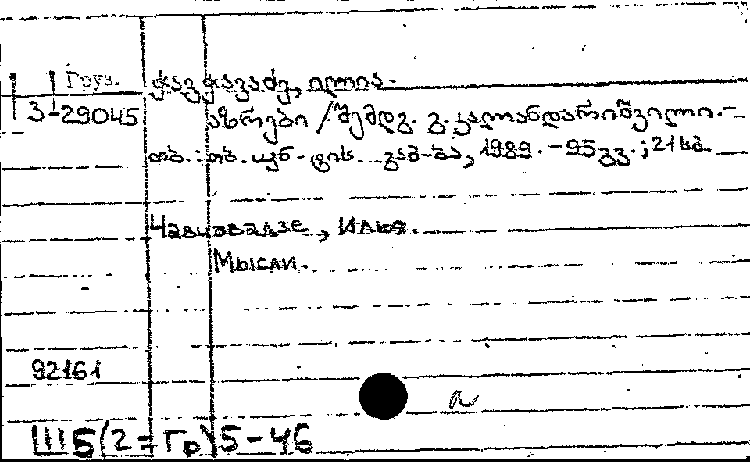 Груз. ჭავჭავაძე, ილია.
3-29045 აზრები / შემდგ. გ. კალანდარიშვილი.-
თბ.: თბ. უნ-ტის გამ-ბა, 1989. - 95გვ.; 21სმ.
Чавчавадзе, Илья.
Мысли.
92161
Ш5(2=Гр)5-46